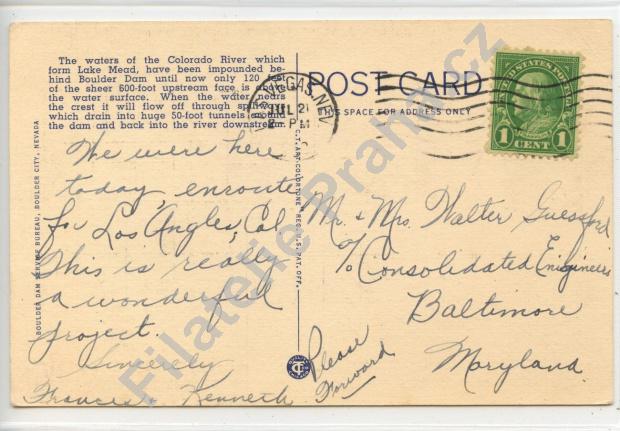 The waters of the Colorado River which
form Lake Mead, have been impounded be-
hind Boulder Dam until now only 120 feet
of the sheer 600-foot upstream face is above
the water surface. When the water nears
the crest it will flow off through spillways
which drain into huge 50-foot tunnels around
the dam and back into the river downstream.
We were here
today enroute
for Los Angles, Cal
This is really
a wonderful
project.
Sincerely
Frances + Kenneth
BOULDER DAM SERVICE BUREAU, BOULDER CITY, NEVADA
C.T. ART-COLORTONE REG. U.S. PAT. OFF.
POST CARD
THIS SPACE FOR ADDRESS ONLY
VEGAS, NEV
JUL 21
PM
UNITED STATES POSTAGE
1 CENT 1
Mr. & Mrs. Walter Guessford
c/o Consolidated Engineers
Baltimore
Maryland.
Please
Forward
Filatelie Praha.cz